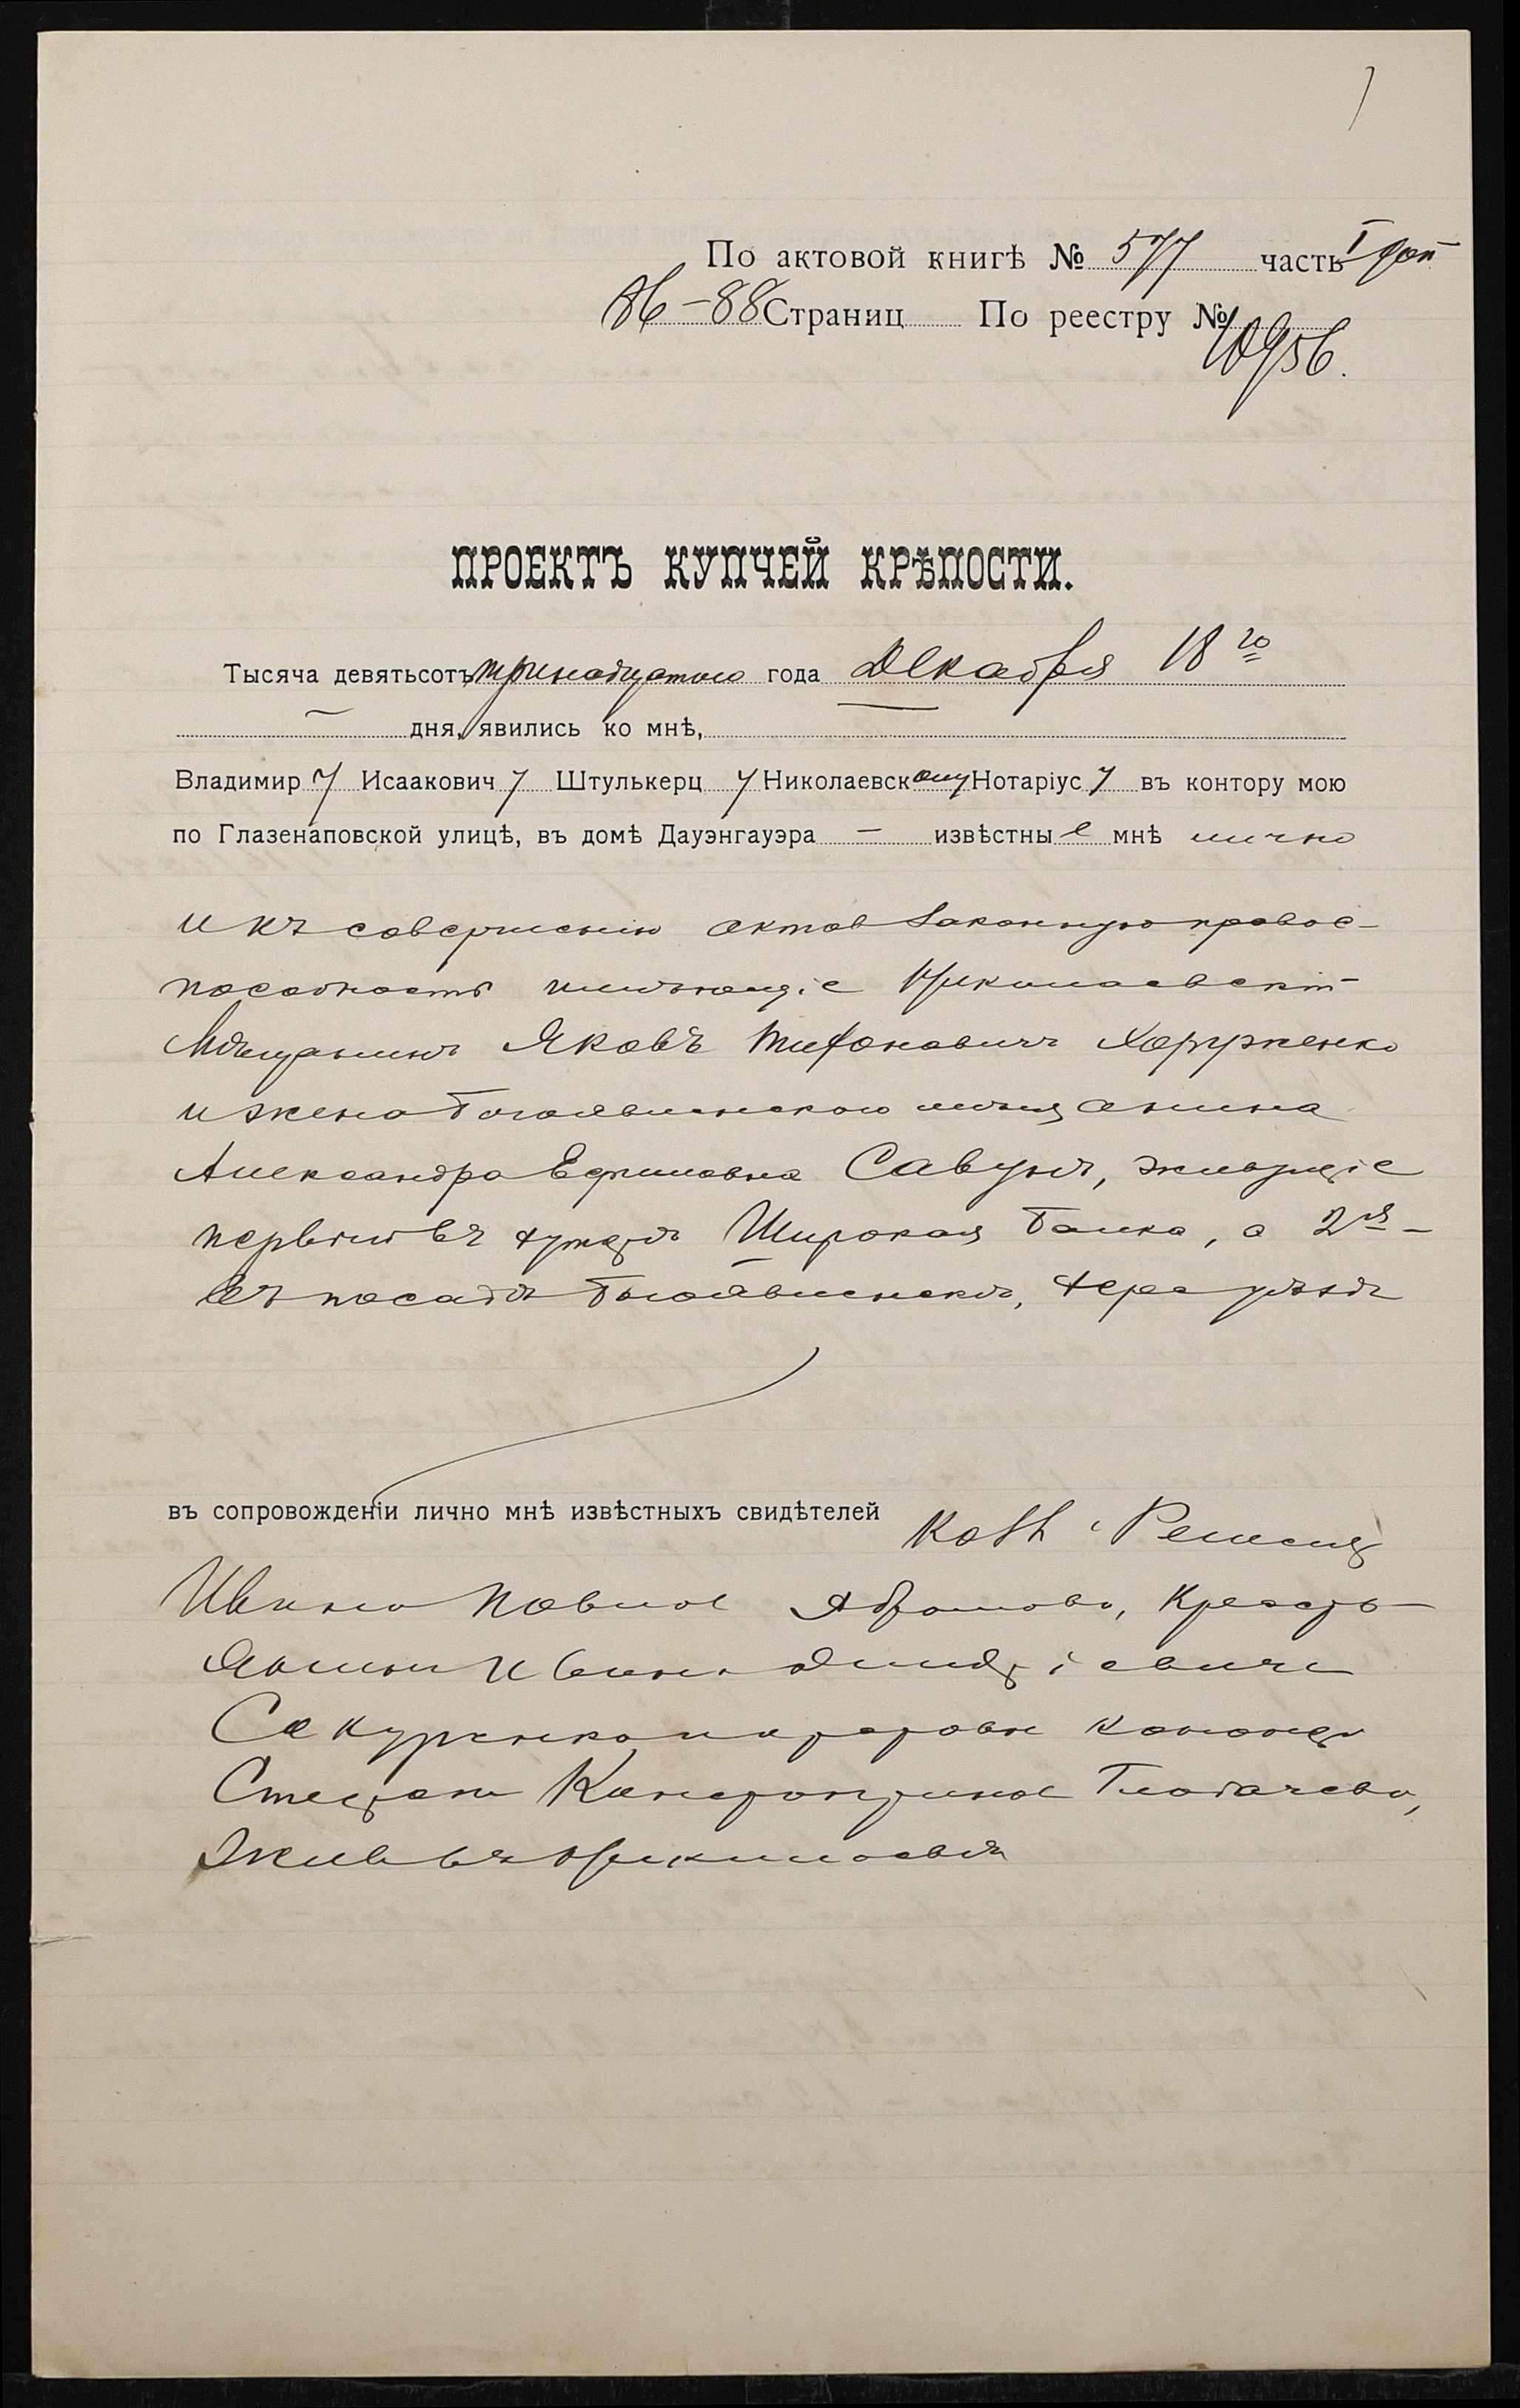 По актовой книгѣ № 577 часть I доп
86-88 Страниц По реестру №
10956.
ПРОЕКТЪ КУПЧЕЙ КРѢПОСТИ.
Тысяча девятьсотъ тринадцатого года Декабря 18 го
дня, явились ко мнѣ,
Владимир у Исаакович у Штулькерц у Николаевскому Нотаріус у въ контору мою
по Глазенаповской улицѣ, въ домѣ Дауэнгауэра — извѣстны е мнѣ лично
и къ совершенію актов законную правос-
пособность имѣющіе Николаевскій
Мѣщанинъ Яковъ Харченко
и жена Богоявленского мѣщанина
Александра Ефимовна Савунъ, живущіе
первый въ Широкая Балка, а 2я -
въ посадѣ Богоявленскѣ, Херс уѣзда
въ сопровожденіи лично мнѣ извѣстныхъ свидѣтелей
Ивана Павлов Абрамова, Кресть-
янина Ивана
Степана Константинов
Жив въ Николаевѣ